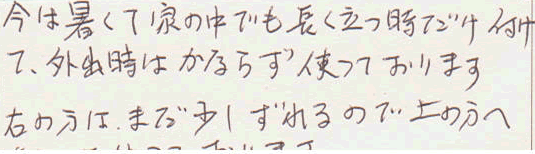 今は暑くて家の中でも長く立つ時だけ付け
て、外出時はかならず使っております
右の方は、まだ少しずれるので上の方へ